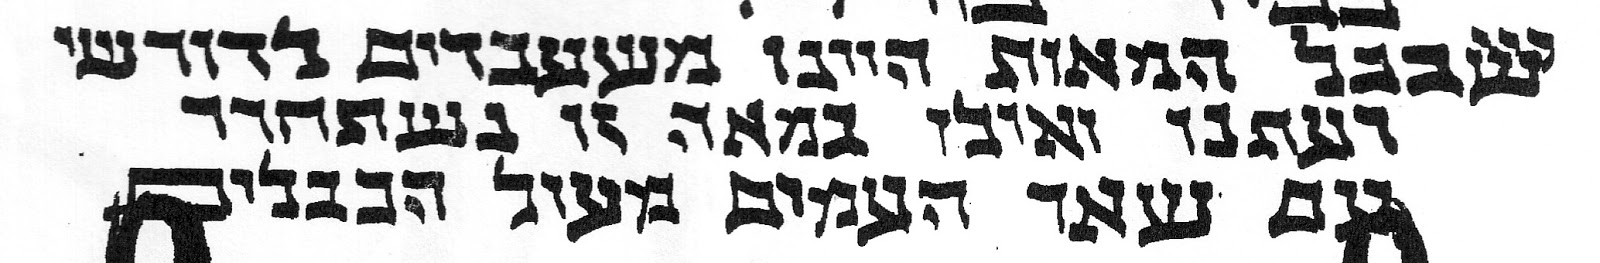 שבכל המאות היינו משעבדים לדורשי
רעתנו ואילו במאה זו נשתחרר
עם שאר העמים מעול הכבלים